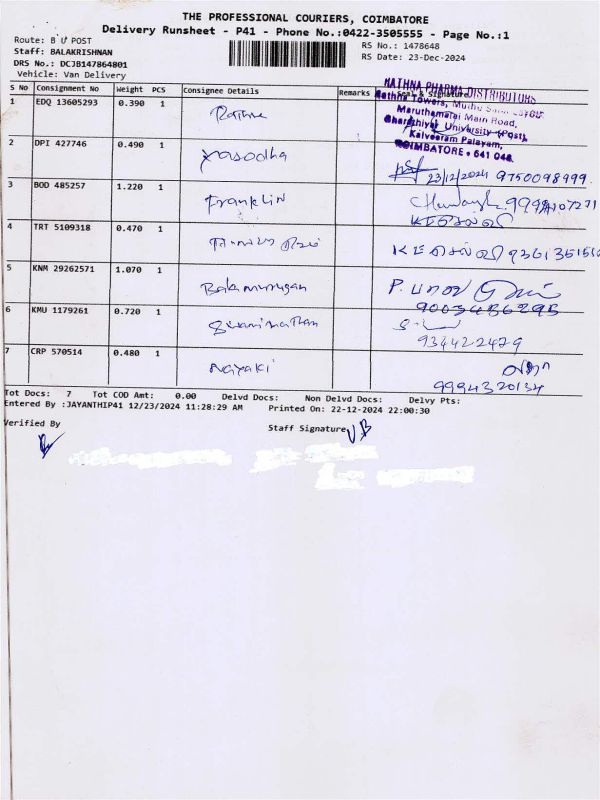 THE PROFESSIONAL COURIERS, COIMBATORE
Delivery Runsheet - P41 - Phone No.:0422-3505555 - Page No.:1
Route: B U POST
RS No.: 1478648
Staff: BALAKRISHNAN
RS Date: 23-Dec-2024
DRS No.: DCJB147864801
Vehicle: Van Delivery
S No Consignment No Weight PCS Consignee Details Remarks Seal & Signature
RATHNA PHARMA DISTRIBUTORS
Rathna Towers,
Maruthamalai Main Road,
Bharathiyar University (Post),
Kalveeram Palayam,
COIMBATORE - 641 046.
1 EDQ 13605293 0.390 1 Rathna
2 DPI 427746 0.490 1 yasodha 23/12/2024 9750098999
3 BOD 485257 1.220 1 Franklin
4 TRT 5109318 0.470 1
5 KNM 29262571 1.070 1 Balamurugan P.
9003486295
6 KMU 1179261 0.720 1 Swaminathan
934422479
7 CRP 570514 0.480 1 Nayaki
9994320134
Tot Docs: 7 Tot COD Amt: 0.00 Delvd Docs: Non Delvd Docs: Delvy Pts:
Entered By :JAYANTHIP41 12/23/2024 11:28:29 AM Printed On: 22-12-2024 22:00:30
Verified By
Staff Signature